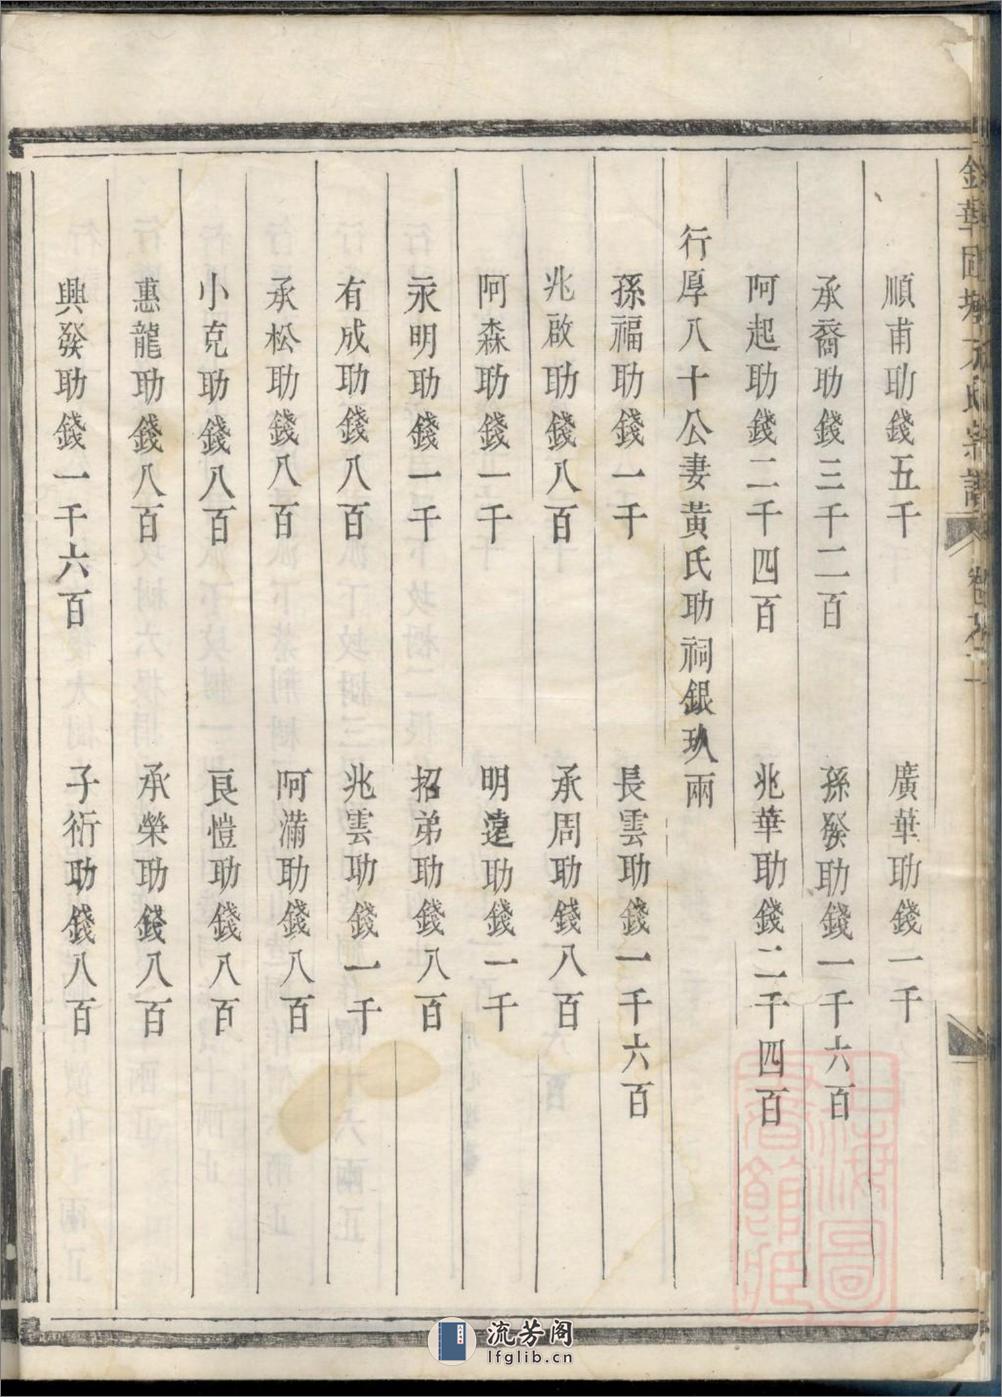 順甫助錢五千　廣華助錢一千
承裔助錢三千二百　孫發助錢一千六百
阿起助錢二千四百　兆華助錢二千四百
行厚八十公妻黃氏助祠銀玖兩
孫福助錢一千　長雲助錢一千六百
兆啟助錢八百　承周助錢八百
阿森助錢一千　明遠助錢一千
永明助錢一千　招弟助錢八百
有成助錢八百　兆雲助錢一千
承松助錢八百　阿滿助錢八百
小克助錢八百　良愷助錢八百
惠龍助錢八百　承榮助錢八百
興發助錢一千六百　子衍助錢八百
上海圖書館藏
流芳阁
lfglib.cn